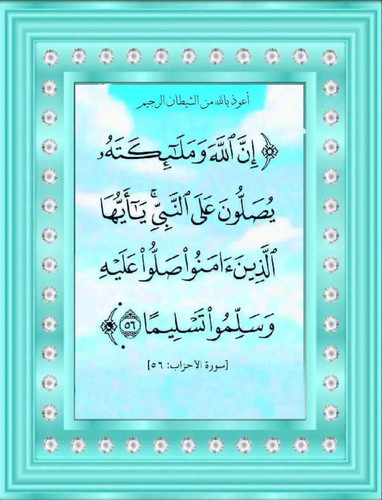 أعوذ بالله من الشيطان الرجيم
﴿ إِنَّ ٱللَّهَ وَمَلَٰٓئِكَتَهُۥ
يُصَلُّونَ عَلَى ٱلنَّبِيِّۚ يَٰٓأَيُّهَا
ٱلَّذِينَ ءَامَنُوا۟ صَلُّوا۟ عَلَيْهِ
وَسَلِّمُوا۟ تَسْلِيمًا ٥٦ ﴾
[سورة الاحزاب: ٥٦]